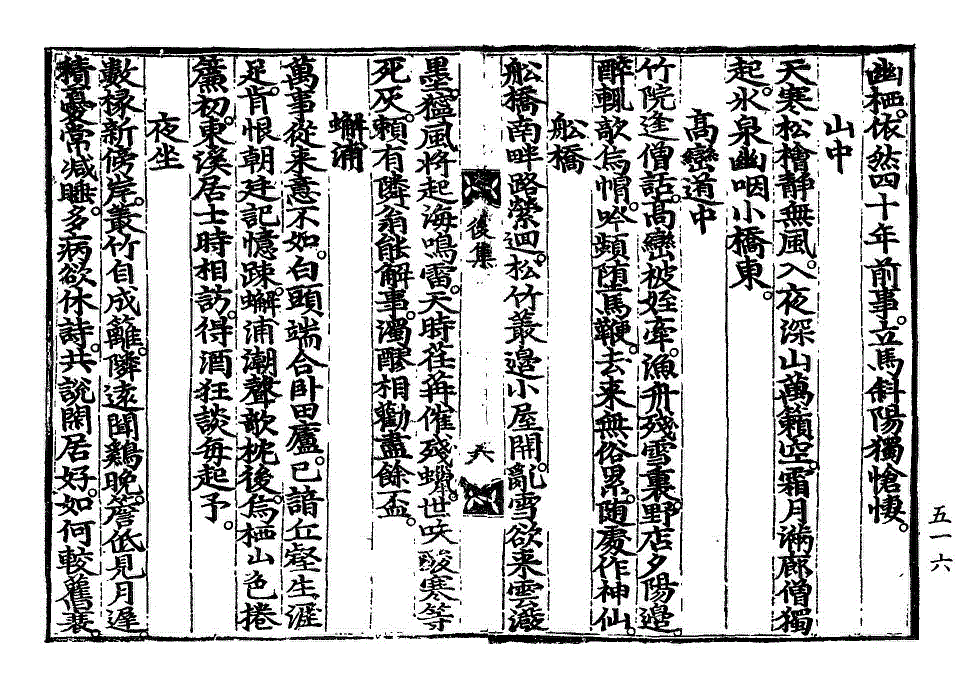 幽栖。依然四十年前事。立馬斜陽獨愴悽。
山中
天寒松檜靜無風。入夜深山萬籟空。霜月滿廊僧獨
起。氷泉幽咽小橋東。
髙巒道中
竹院逢僧話。髙巒被姪牽。漁舟殘雪裏。野店夕陽邊。
醉軏欹烏帽。吟頻堕馬鞭。去来無俗累。随處作神仙。
舩橋
舩橋南畔路縈迴。松竹叢邊小屋開。亂雪欲来雲潑
後集
六
墨。獰風將起海鳴雷。天時荏苒催殘蠟。世味酸寒等
死灰。頼有隣翁能解事。濁醪相勸盡餘盃。
蠏浦
萬事從来意不如。白頭端合卧田廬。已諳丘壑生涯
足。肯恨朝廷記憶踈。蠏浦潮聲欹枕後。烏栖山色捲
簾初。東溪居士時相訪。得酒狂談每起予。
夜坐
數椽新傍岸。叢竹自成籬。隣遠聞鷄晚。簷低見月遲。
積憂常减睡。多病欲休詩。共說閑居好。如何較舊衰。
五一六